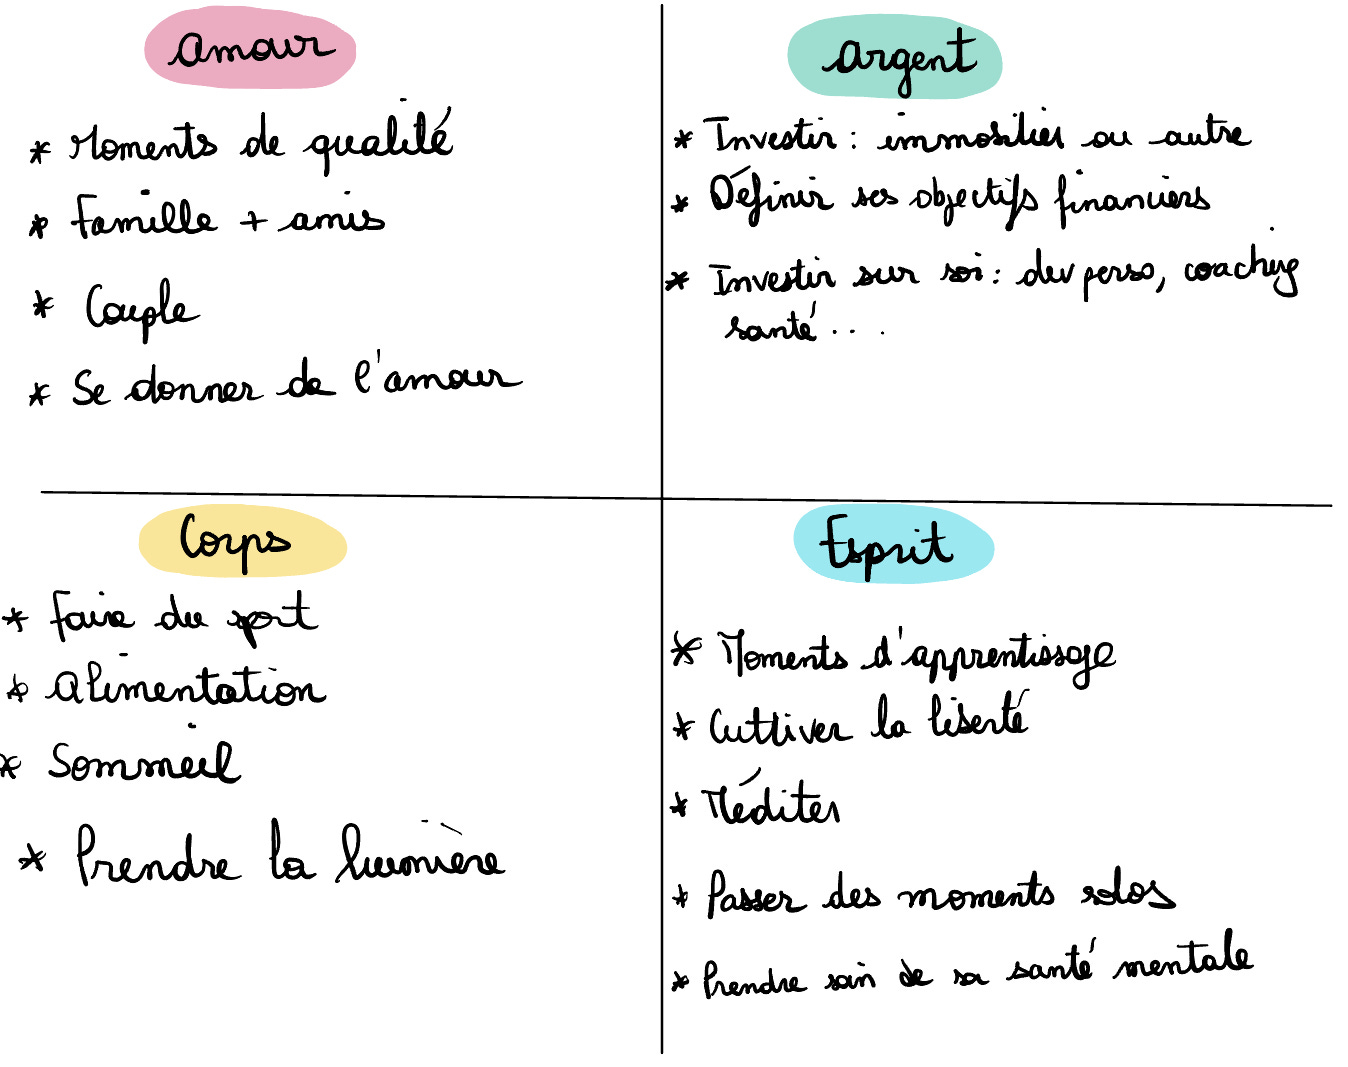 Amour
* Moments de qualité
* Famille + amis
* Couple
* Se donner de l'amour
Argent
* Investir : immobilier ou autre
* Définir ses objectifs financiers
* Investir sur soi : dev perso, coaching
santé...
Corps
* Faire du sport
* Alimentation
* Sommeil
* Prendre la lumière
Esprit
* Moments d'apprentissage
* Cultiver la liberté
* Méditer
* Passer des moments solos
* Prendre soin de sa santé mentale